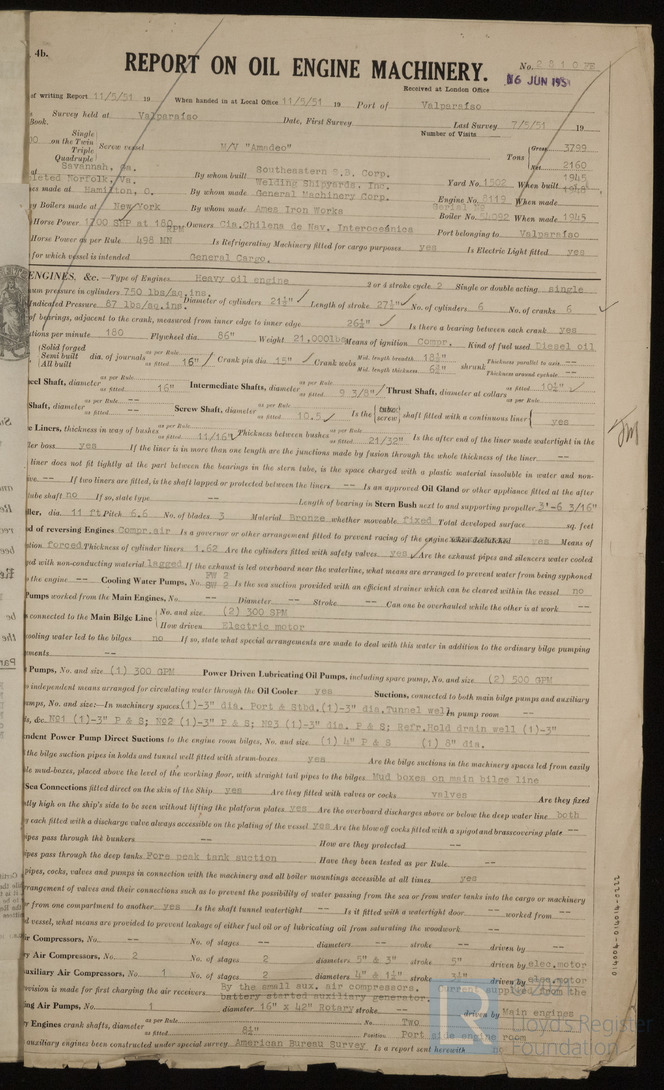 4b.
REPORT ON OIL ENGINE MACHINERY.
No. 2810 PE
16 JUN 1951
Received at London Office
of writing Report 11/5/51 19 When handed in at Local Office 11/5/51 19 Port of Valparaiso
Survey held at Valparaiso Date, First Survey Last Survey 7/5/51 19
Book. Number of Visits
Single
on the Twin
Triple
Quadruple
Screw vessel M/V "Amadeo" Tons Gross 3799
Net 2160
Savannah, Ga. By whom built Southeastern S.B. Corp. Yard No. 1502 When built 1945
leted Norfolk, Va. Welding Shipyards, Inc. 1948
es made at Hamilton, O. By whom made General Machinery Corp. Engine No. 8119 When made
y Boilers made at New York By whom made Ames Iron Works Serial No
Boiler No. 54052 When made 1945
Horse Power 1700 SHP at 180 RPM Owners Cia.Chilena de Nav. Interoceánica Port belonging to Valparaiso
Horse Power as per Rule 498 MN Is Refrigerating Machinery fitted for cargo purposes yes Is Electric Light fitted yes
for which vessel is intended General Cargo.
ENGINES, &c.—Type of Engines Heavy oil engine 2 or 4 stroke cycle 2 Single or double acting single
mum pressure in cylinders 750 lbs/sq.ins. Diameter of cylinders 21½" Length of stroke 27½" No. of cylinders 6 No. of cranks 6
Indicated Pressure 87 lbs/sq.ins.
of bearings, adjacent to the crank, measured from inner edge to inner edge 26½" Is there a bearing between each crank yes
utions per minute 180 Flywheel dia. 86" Weight 21.000lbs Means of ignition Compr. Kind of fuel used Diesel oil
Solid forged
Semi built
All built
dia. of journals as per Rule
as fitted 16" Crank pin dia. 15" Crank webs Mid. length breadth 18½"
Mid. length thickness 6¾" shrunk Thickness parallel to axis --
Thickness around eyehole --
eel Shaft, diameter as per Rule
as fitted 16" Intermediate Shafts, diameter as per Rule
as fitted 9 3/8" Thrust Shaft, diameter at collars as fitted 10½"
as per Rule
Shaft, diameter as per Rule --
as fitted -- Screw Shaft, diameter as per Rule
as fitted 10.5 Is the tube screw shaft fitted with a continuous liner yes
e Liners, thickness in way of bushes as per Rule
as fitted 11/16" Thickness between bushes as per Rule
as fitted 21/32" Is the after end of the liner made watertight in the
ler boss yes If the liner is in more than one length are the junctions made by fusion through the whole thickness of the liner --
liner does not fit tightly at the part between the bearings in the stern tube, is the space charged with a plastic material insoluble in water and non-
ive. -- If two liners are fitted, is the shaft lapped or protected between the liners -- Is an approved Oil Gland or other appliance fitted at the after
tube shaft no If so, state type -- Length of bearing in Stern Bush next to and supporting propeller 3'-6 3/16"
ller, dia. 11 ft Pitch 6.6 No. of blades 3 Material Bronze whether moveable fixed Total developed surface sq. feet
d of reversing Engines Compr.air. Is a governor or other arrangement fitted to prevent racing of the engine when declutched yes Means of
ation forced Thickness of cylinder liners 1.62 Are the cylinders fitted with safety valves yes Are the exhaust pipes and silencers water cooled
ged with non-conducting material lagged If the exhaust is led overboard near the waterline, what means are arranged to prevent water from being syphoned
the engine -- Cooling Water Pumps, No. FW 2
SW 2 Is the sea suction provided with an efficient strainer which can be cleared within the vessel no
Pumps worked from the Main Engines, No. -- Diameter -- Stroke -- Can one be overhauled while the other is at work --
connected to the Main Bilge Line No. and size. (2) 300 GPM
How driven Electric motor
ooling water led to the bilges no If so, state what special arrangements are made to deal with this water in addition to the ordinary bilge pumping
ements --
Pumps, No. and size (1) 300 GPM Power Driven Lubricating Oil Pumps, including spare pump, No. and size (2) 500 GPM
o independent means arranged for circulating water through the Oil Cooler yes Suctions, connected to both main bilge pumps and auxiliary
umps, No. and size:—In machinery spaces (1)-3" dia. Port & Stbd.(1)-3" dia.Tunnel well In pump room --
ds, &c. No1 (1)-3" P & S; No2 (1)-3" P & S; No3 (1)-3" dia. P & S; Refr.Hold drain well (1)-3"
ndent Power Pump Direct Suctions to the engine room bilges, No. and size (1) 4" P & S (1) 8" dia.
the bilge suction pipes in holds and tunnel well fitted with strum-boxes yes Are the bilge suctions in the machinery spaces led from easily
le mud-boxes, placed above the level of the working floor, with straight tail pipes to the bilges Mud boxes on main bilge line
Sea Connections fitted direct on the skin of the Ship yes Are they fitted with valves or cocks valves Are they fixed
tly high on the ship's side to be seen without lifting the platform plates yes Are the overboard discharges above or below the deep water line both
y each fitted with a discharge valve always accessible on the plating of the vessel yes Are the blow off cocks fitted with a spigot and brass covering plate --
ipes pass through the bunkers -- How are they protected --
ipes pass through the deep tanks Fore peak tank suction Have they been tested as per Rule --
pipes, cocks, valves and pumps in connection with the machinery and all boiler mountings accessible at all times yes
rrangement of valves and their connections such as to prevent the possibility of water passing from the sea or from water tanks into the cargo or machinery
r from one compartment to another yes Is the shaft tunnel watertight -- Is it fitted with a watertight door -- worked from --
d vessel, what means are provided to prevent leakage of either fuel oil or of lubricating oil from saturating the woodwork --
ir Compressors, No. -- No. of stages -- diameters -- stroke -- driven by --
ry Air Compressors, No. 2 No. of stages 2 diameters 5" & 3" stroke 5" driven by elec.motor
uxiliary Air Compressors, No. 1 No. of stages 2 diameters 4" & 1½" stroke driven by
ovision is made for first charging the air receivers By the small aux. air compressors. Current supplied from the
battery started auxiliary generator.
ing Air Pumps, No. 1 diameter 16" x 42" Rotary stroke -- driven by Main engines
y Engines crank shafts, diameter as per Rule
as fitted 8½" No. Two
Position Port side engine room
auxiliary engines been constructed under special survey American Bureau Survey Is a report sent herewith no
014004-014014-0222
Lloyd's Register
Foundation